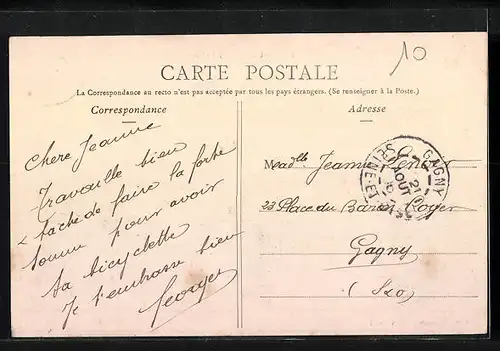 10
CARTE POSTALE
La Correspondance au recto n'est pas acceptée par tous les pays étrangers. (Se renseigner à la Poste.)
Correspondance
Adresse
Chère Jeanne
Travaille bien
tache de faire la forte
somme pour avoir
ta bicyclette
Je t'embrasse bien
Georges
Madlle Jeanne
23 Place du Baron Roger
Gagny
(S&O)
GAGNY
21
AOUT
SEINE-ET-